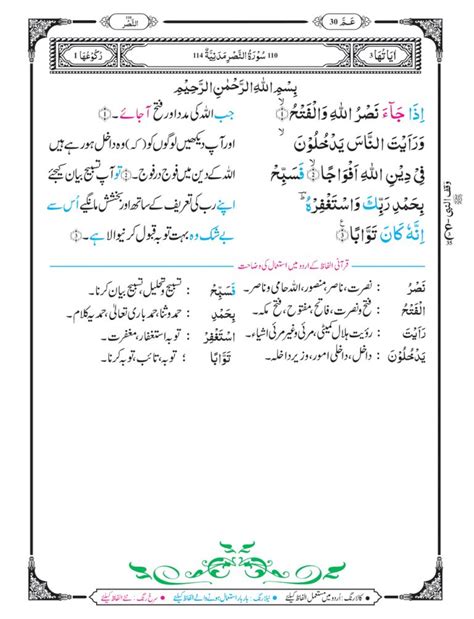 النَّصْر
عَمَّ 30
اٰیَاتُهَا 3
110 سُوْرَةُ النَّصْرِ مَدَنِیَّةٌ 114
رُكُوْعُهَا 1
بِسْمِ اللّٰهِ الرَّحْمٰنِ الرَّحِیْمِ
اِذَا جَآءَ نَصْرُ اللّٰهِ وَالْفَتْحُ ۝۱
جب اللہ کی مدد اور فتح آجائے۔ ۝۱
وَرَاَیْتَ النَّاسَ یَدْخُلُوْنَ
اور آپ دیکھیں لوگوں کو (کہ) وہ داخل ہو رہے ہیں
فِیْ دِیْنِ اللّٰهِ اَفْوَاجًا ۝۲ فَسَبِّحْ
اللہ کے دین میں فوج در فوج۔ ۝۲ تو آپ تسبیح بیان کیجئے
بِحَمْدِ رَبِّكَ وَاسْتَغْفِرْهُ
اپنے رب کی تعریف کے ساتھ اور بخشش مانگیے اُس سے
اِنَّهٗ كَانَ تَوَّابًا ۝۳
بے شک وہ بہت توبہ قبول کرنیوالا ہے۔ ۝۳
وقف النبی ﷺ
قرآنی الفاظ کے اردو میں استعمال کی وضاحت
نَصْرُ : نصرت، ناصر، منصور، اللہ حامی و ناصر۔
فَسَبِّحْ : تسبیح و تحلیل، تسبیح بیان کرنا۔
الْفَتْحُ : فتح و نصرت، فاتح، مفتوح، فتح مکہ۔
بِحَمْدِ : حمد و ثنا، حمد باری تعالیٰ، حمدیہ کلام۔
رَاَیْتَ : رؤیت ہلال کمیٹی، مرئی و غیر مرئی اشیاء۔
وَاسْتَغْفِرْهُ : توبہ استغفار، مغفرت۔
یَدْخُلُوْنَ : داخل، داخلی امور، وزیر داخلہ۔
تَوَّابًا : توبہ، تائب، توبہ کرنا۔
• کالا رنگ : اُردو میں مستعمل الفاظ کیلئے • نیلا رنگ : بار بار استعمال ہونے والے الفاظ کیلئے • سرخ رنگ : نئے الفاظ کیلئے